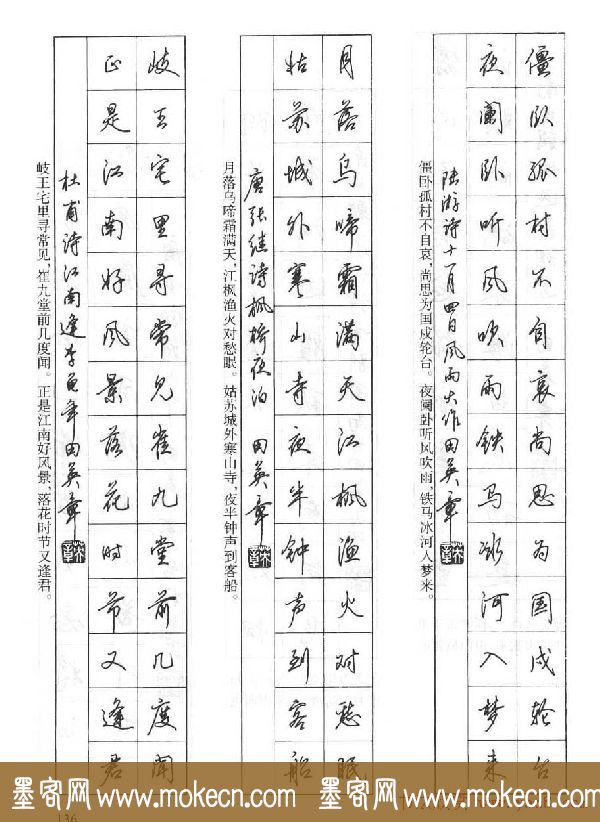 僵卧孤村不自哀尚思为国戍轮台
夜阑卧听风吹雨铁马冰河入梦来
陆游诗十一月四日风雨大作田英章
僵卧孤村不自哀，尚思为国戍轮台。夜阑卧听风吹雨，铁马冰河入梦来。
月落乌啼霜满天江枫渔火对愁眠
姑苏城外寒山寺夜半钟声到客船
唐张继诗枫桥夜泊 田英章
月落乌啼霜满天，江枫渔火对愁眠。姑苏城外寒山寺，夜半钟声到客船。
岐王宅里寻常见崔九堂前几度闻
正是江南好风景落花时节又逢君
杜甫诗江南逢李龟年田英章
岐王宅里寻常见，崔九堂前几度闻。正是江南好风景，落花时节又逢君。
墨客网www.mokecn.com 墨客网www.mokecn.com
136